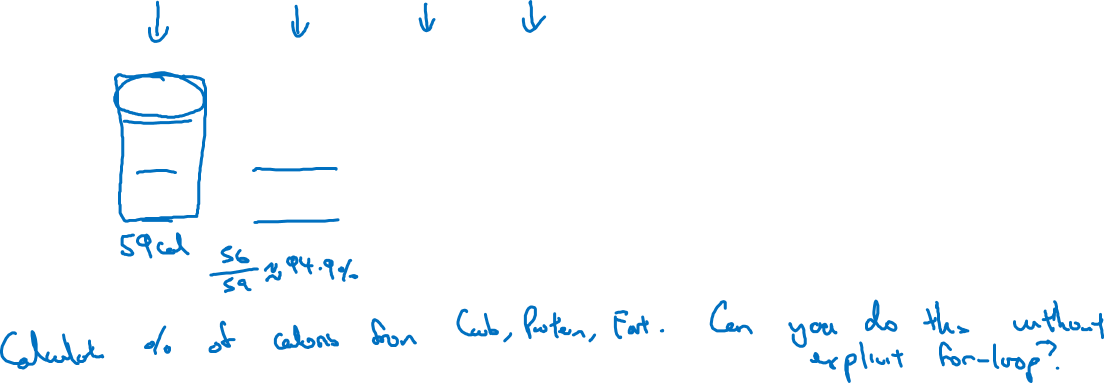 59 cal
56
59 ≈ 94.9%
Calculate % of calories from Carb, Protein, Fat. Can you do this without
explicit for-loop?